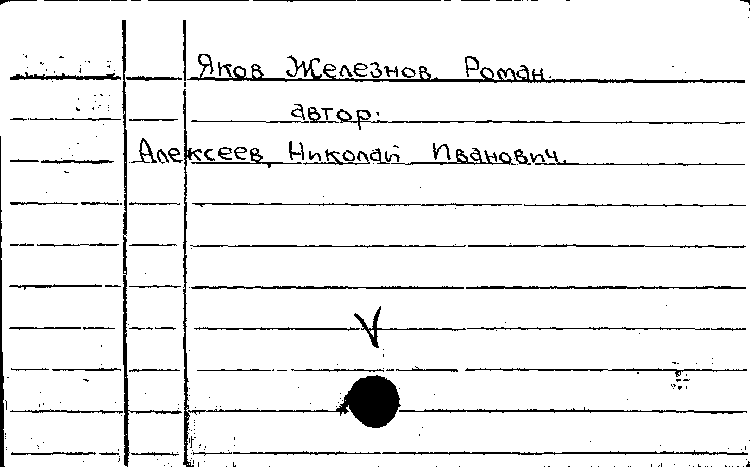 Яков Железнов. Роман.
автор:
Алексеев, Николай Иванович.
V